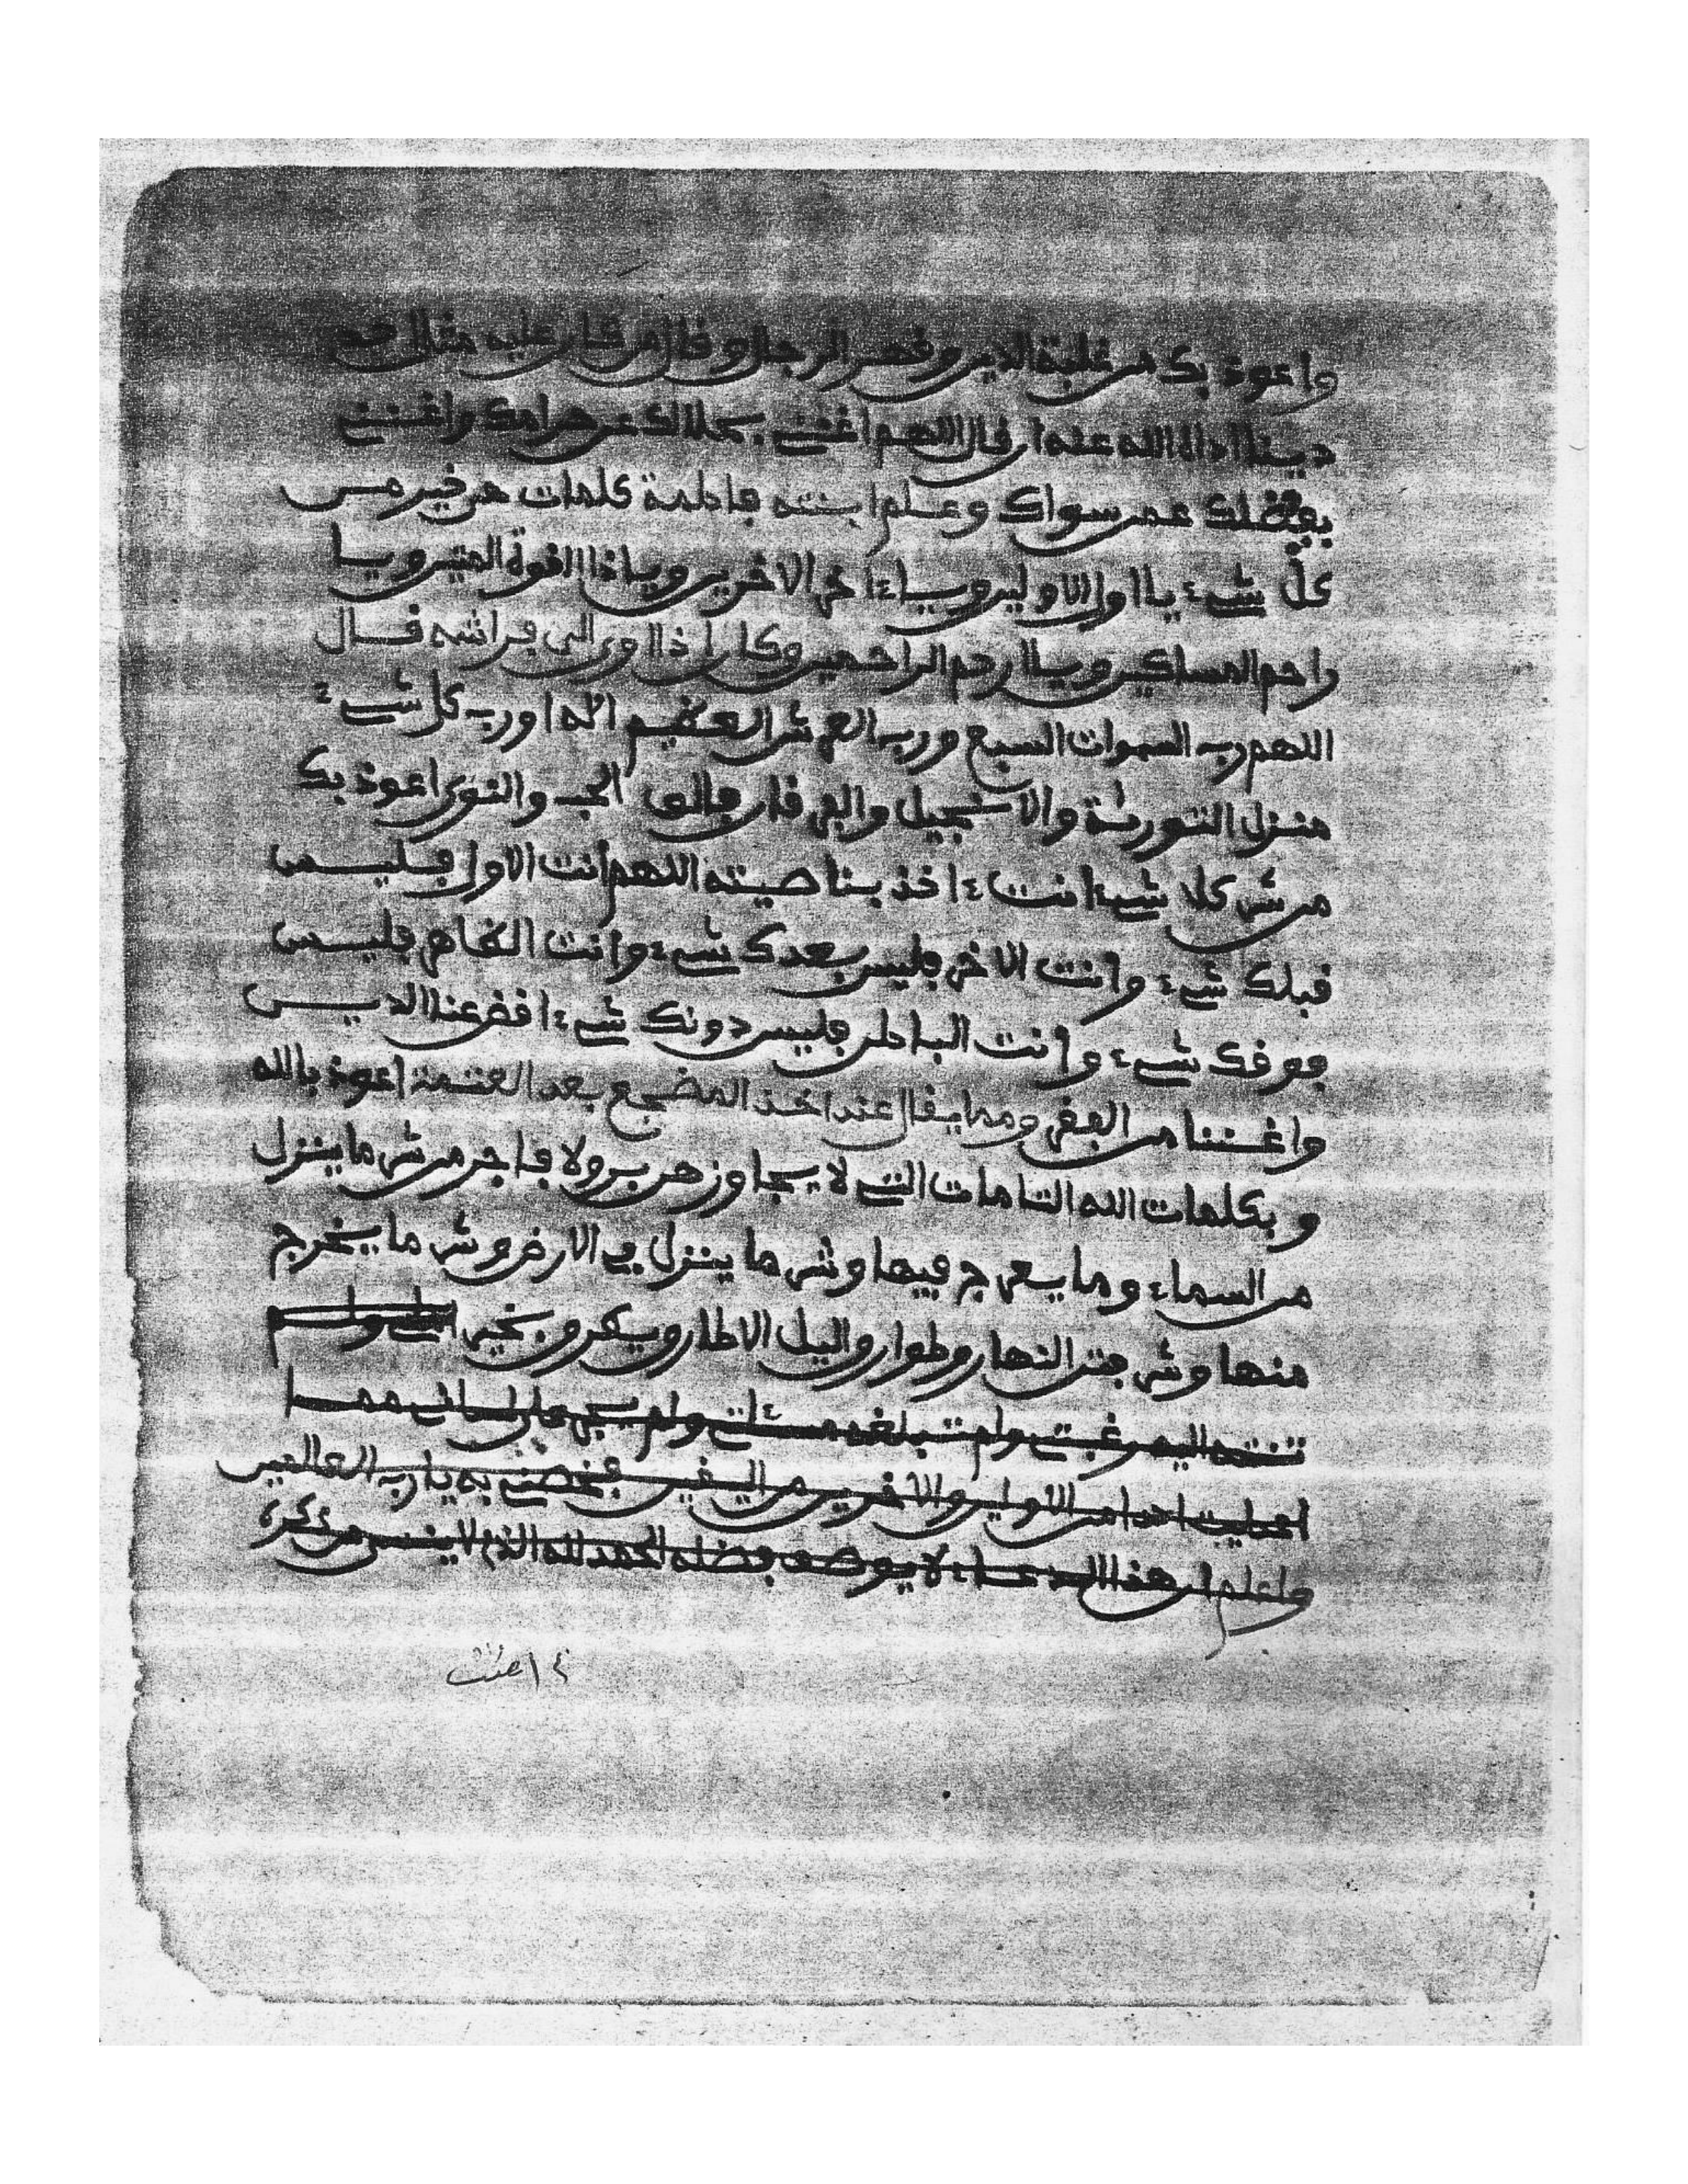 واعوذ بك من غلبة الدين وقهر الرجال وقال من كان عليه مثل
دينا اداه الله عنه ان قال اللهم اغنني بحلالك عن حرامك واغنني
بفضلك عمن سواك وعلم ابنته فاطمة كلمات هن خير من
كل شيء يا اول الاولين ويا ءاخر الاخرين ويا ذا القوة المتين ويا
راحم المساكين ويا ارحم الراحمين وكان اذا اوى الى فراشه قال
اللهم رب السموات السبع ورب العرش العظيم الاها ورب كل شيء
منزل التورية والانجيل والفرقان فالق الحب والنوى اعوذ بك
من شر كل شيء انت ءاخذ بناصيته اللهم انت الاول فليس
قبلك شيء وانت الاخر فليس بعدك شيء وانت الظاهر فليس
فوقك شيء وانت الباطن فليس دونك شيء اقض عنا الدين
واغننا من الفقر ومما يقال عند اخذ المضجع بعد العتمة اعوذ بالله
وبكلمات الله التامات التي لا يجاوزهن بر ولا فاجر من شر ما ينزل
من السماء وما يعرج فيها وشر ما ينزل في الارض وشر ما يخرج
منها وشر فتن النهار وطوارق اليل الا طارق يطرق بخير ولم
تنته اليه رغبتي ولم تبلغه مسئلتي ولم يجر على لساني مما
اعطيت احدا من الاولين والاخرين من اليقين فخصني به يا رب العالمين
واعلم ان هذا الدعاء لا يوصف فضله الحمد لله الذي لا ينسى من ذكره